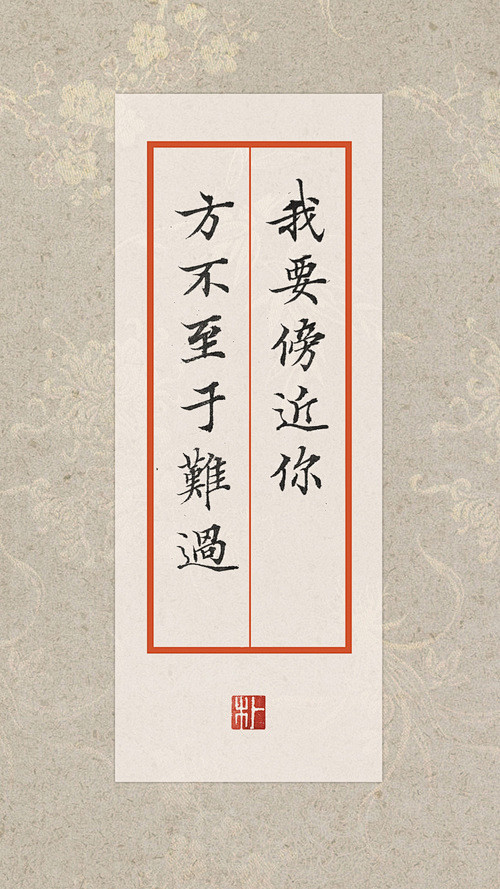 我要傍近你
方不至于難過
朴